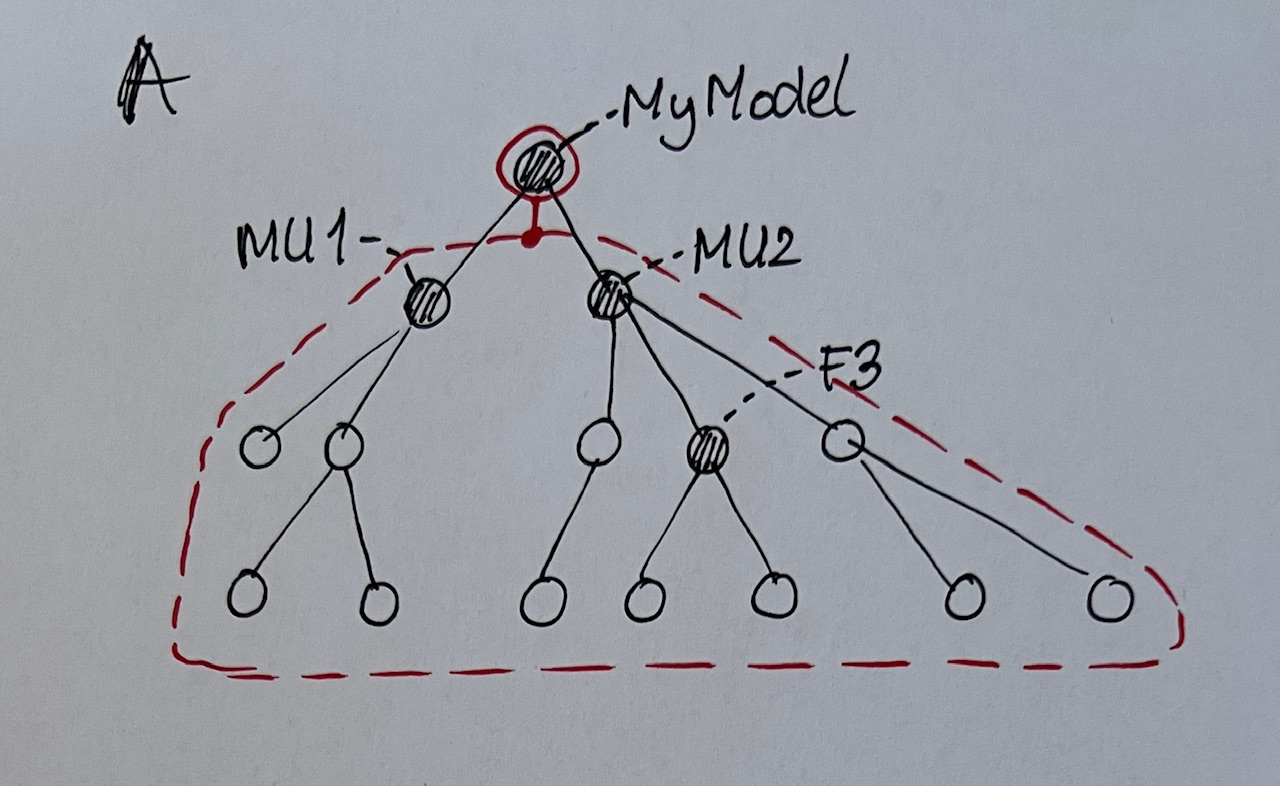 A
MyModel
MU1
MU2
F3